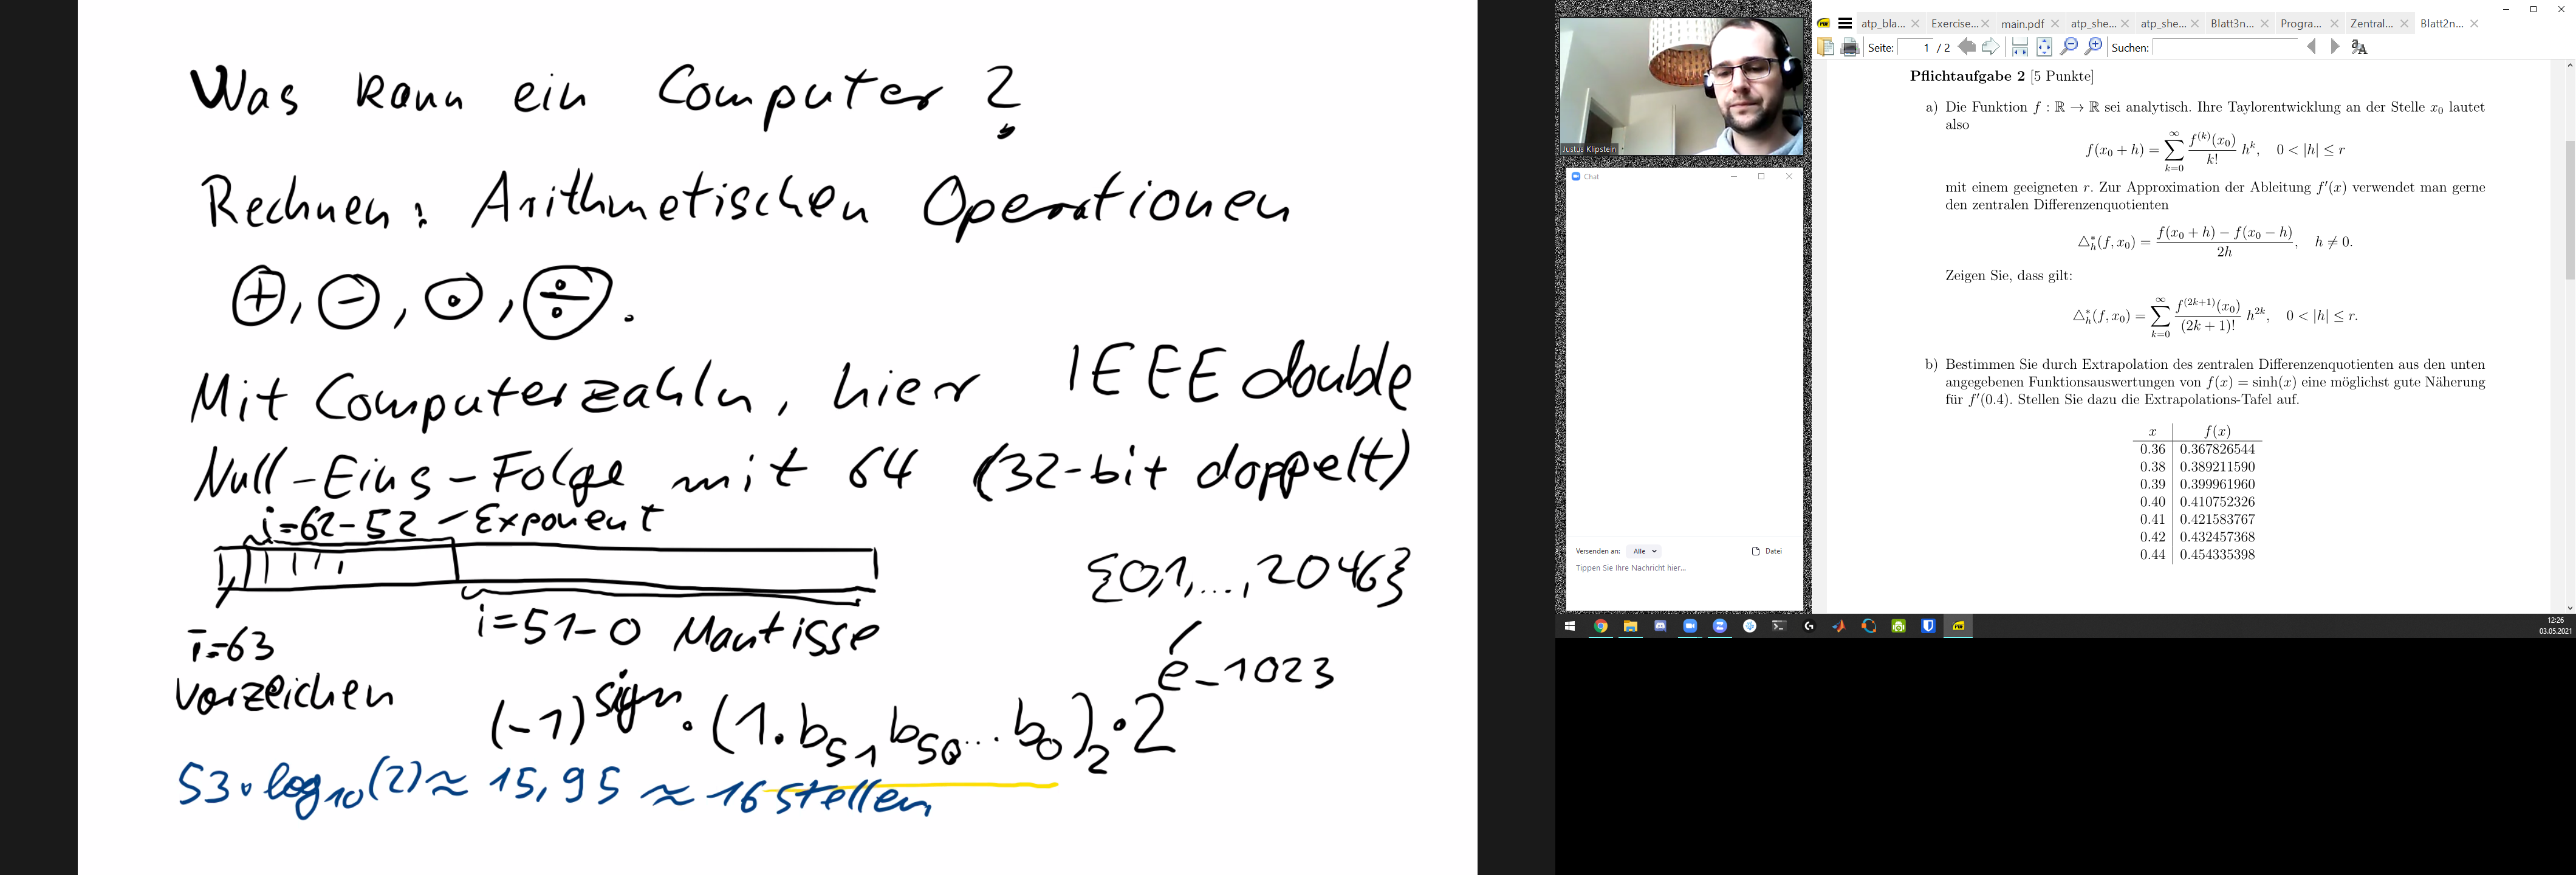 Was kann ein Computer ?
Rechnen: Arithmetischen Operationen
⊕, ⊖, ⊙, ÷.
Mit Computerzahln, hier IEEE double
Null-Eins-Folge mit 64 (32-bit doppelt)
i=62-52 - Exponent
{0,1,...,2046}
i=51-0 Mantisse
i=63
vorzeichen
(-1)^sign · (1.b_51 b_50 ... b_0)_2 · 2^(e-1023)
53·log_10(2) ≈ 15,95 ≈ 16 stellen
Justus Klipstein
Chat
Versenden an: Alle Datei
Tippen Sie Ihre Nachricht hier...
atp_bla... Exercise... main.pdf atp_she... atp_she... Blatt3n... Progra... Zentral... Blatt2n...
Seite: 1 / 2 Suchen:
Pflichtaufgabe 2 [5 Punkte]
a) Die Funktion f : ℝ → ℝ sei analytisch. Ihre Taylorentwicklung an der Stelle x₀ lautet
also
f(x₀ + h) = ∑_{k=0}^{∞} f^{(k)}(x₀)/k! h^k, 0 < |h| ≤ r
mit einem geeigneten r. Zur Approximation der Ableitung f′(x) verwendet man gerne
den zentralen Differenzenquotienten
△*_h(f, x₀) = (f(x₀ + h) − f(x₀ − h))/2h, h ≠ 0.
Zeigen Sie, dass gilt:
△*_h(f, x₀) = ∑_{k=0}^{∞} f^{(2k+1)}(x₀)/(2k + 1)! h^{2k}, 0 < |h| ≤ r.
b) Bestimmen Sie durch Extrapolation des zentralen Differenzenquotienten aus den unten
angegebenen Funktionsauswertungen von f(x) = sinh(x) eine möglichst gute Näherung
für f′(0.4). Stellen Sie dazu die Extrapolations-Tafel auf.
x f(x)
0.36 0.367826544
0.38 0.389211590
0.39 0.399961960
0.40 0.410752326
0.41 0.421583767
0.42 0.432457368
0.44 0.454335398
12:26
03.05.2021